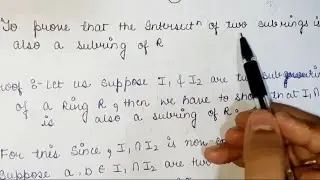 To prove that the Intersectⁿ of two subrings is
also a subring of R
roof :- Let us suppose I₁ & I₂ are two subring
of a Ring R, then we have to show that I₁ ∩
is also a subring of R
For this Since, I₁ ∩ I₂ is non-
Suppose a, b ∈ I₁ ∩ I₂
are two